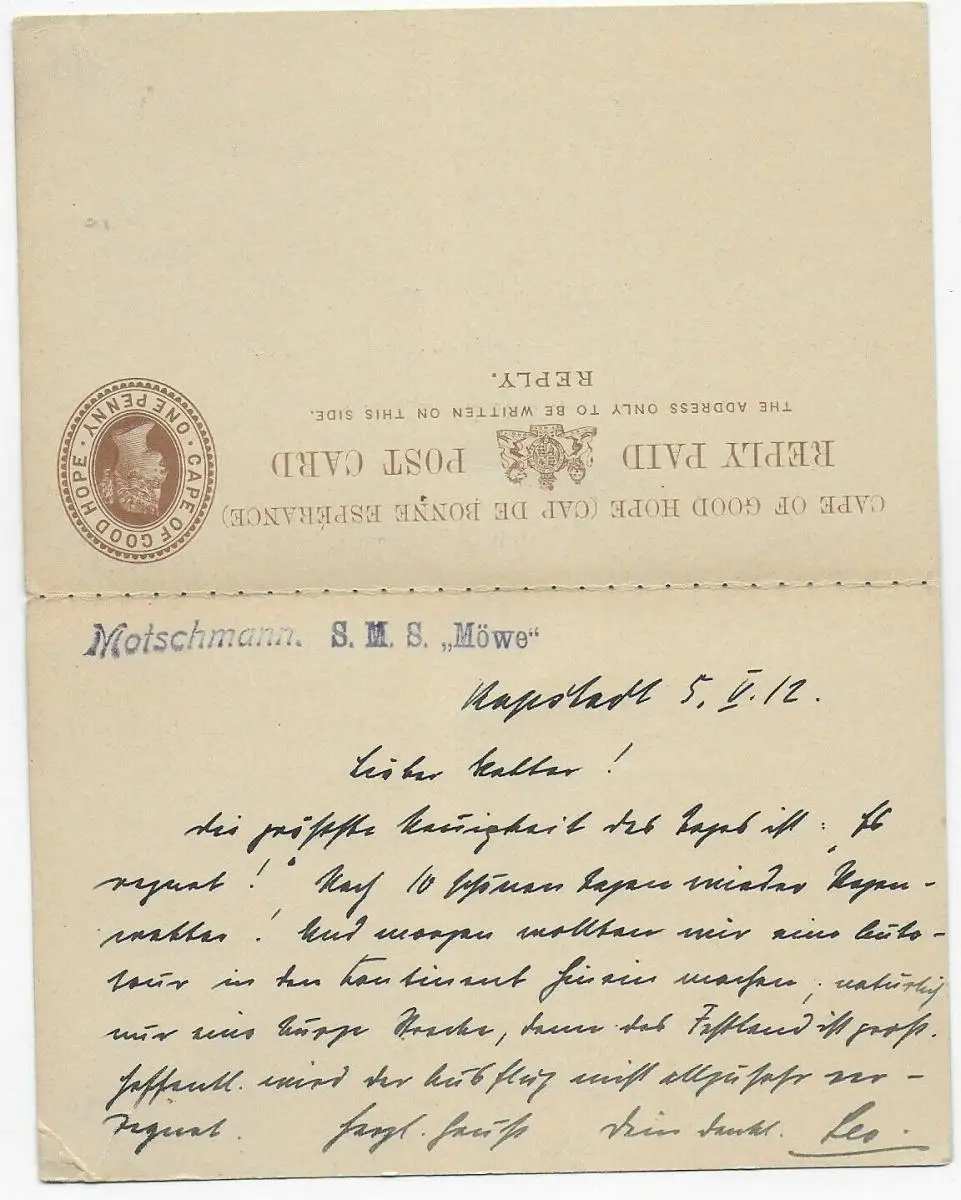 CAPE OF GOOD HOPE (CAP DE BONNE ESPÉRANCE)
REPLY PAID POST CARD
THE ADDRESS ONLY TO BE WRITTEN ON THIS SIDE.
REPLY.
CAPE OF GOOD HOPE · ONE PENNY ·
Motschmann. S. M. S. „Möwe“
Kapstadt 5. V. 12.
Lieber !
die größte Neuigkeit des Tages ist: „Es
regnet!“ Nach 10 schönen Tagen wieder Regen-
wetter! Und morgen wollten wir eine Auto-
tour in den Kontinent hinein machen, natürlich
nur eine kurze Strecke, denn das Festland ist groß.
Hoffentl. wird der Ausflug nicht allzusehr ver-
regnet. Herzl. Grüße Dein dankb. Leo.